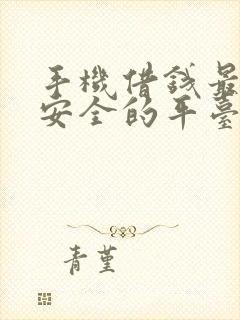 手機借錢最
安全的平臺
青堇